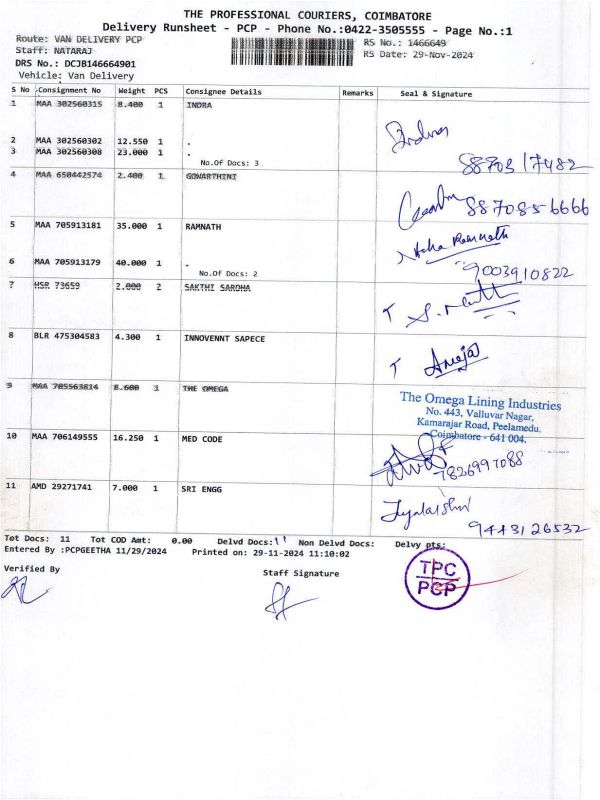 THE PROFESSIONAL COURIERS, COIMBATORE
Delivery Runsheet - PCP - Phone No.:0422-3505555 - Page No.:1
Route: VAN DELIVERY PCP RS No.: 1466649
Staff: NATARAJ RS Date: 29-Nov-2024
DRS No.: DCJB146664901
Vehicle: Van Delivery
S No Consignment No Weight PCS Consignee Details Remarks Seal & Signature
1 MAA 302560315 8.400 1 INDRA
Indra
2 MAA 302560302 12.550 1 .
3 MAA 302560308 23.000 1 .
No.Of Docs: 3
8870317482
4 MAA 650442574 2.400 1 GOWARTHINI
8870856666
5 MAA 705913181 35.000 1 RAMNATH
Ramnath
6 MAA 705913179 40.000 1 .
No.Of Docs: 2
9003910822
7 HSR 73659 2.000 2 SAKTHI SARDHA
8 BLR 475304583 4.300 1 INNOVENNT SAPECE
9 MAA 705563814 8.600 3 THE OMEGA
The Omega Lining Industries
No. 443, Valluvar Nagar,
Kamarajar Road, Peelamedu,
Coimbatore - 641 004.
10 MAA 706149555 16.250 1 MED CODE
7826997088
11 AMD 29271741 7.000 1 SRI ENGG
9443126532
Tot Docs: 11 Tot COD Amt: 0.00 Delvd Docs: 11 Non Delvd Docs: Delvy pts:
Entered By :PCPGEETHA 11/29/2024 Printed on: 29-11-2024 11:10:02
Verified By Staff Signature
TPC
PCP